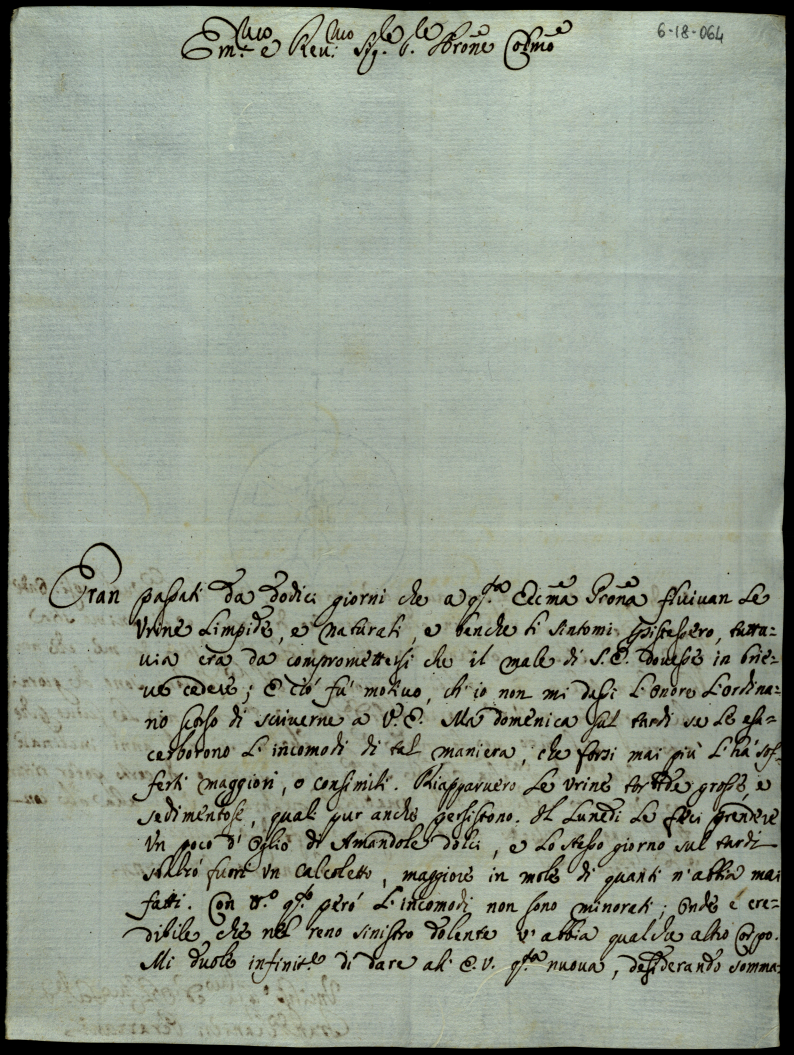 6-18-064
Em.mo e Rev.mo Sig.le e P.le Prone Colmo
Eran passati da dodici giorni che a q.sta Eccma Prona fluivan Le
Urine Limpide, e naturali, e benche li sintomi persistessero, tutta=
via era da compromettersi che il male di S.E. dovesse in brie=
ve cedere; E ciò fù motivo, ch'io non mi dassi L'onore L'ordina=
rio scorso di scriverne a V.E. Ma domenica sul tardi se Le esa=
cerborono L'incomodi di tal maniera, che forsi mai più L'hà sof=
ferti maggiori, o consimili. Riapparuero Le Urine torbide grosse, e
sedimentose, quali pur anche persistono. Il Lunedi Le feci prendere
Un poco d'Oglio di Amandole dolci, e Lo stesso giorno sul tardi
saltiò fuori Un Calcoletto, maggiore in mole di quanti n'abbia mai
fatti. Con t.o q.sto però L'incomodi non sono minorati; Onde è cre=
dibile che nel reno sinistro dolente v'abbia qualche altro Corpo.
Mi duole infinit.e di dare all'E.V. q.sta nuova, desiderando somma=